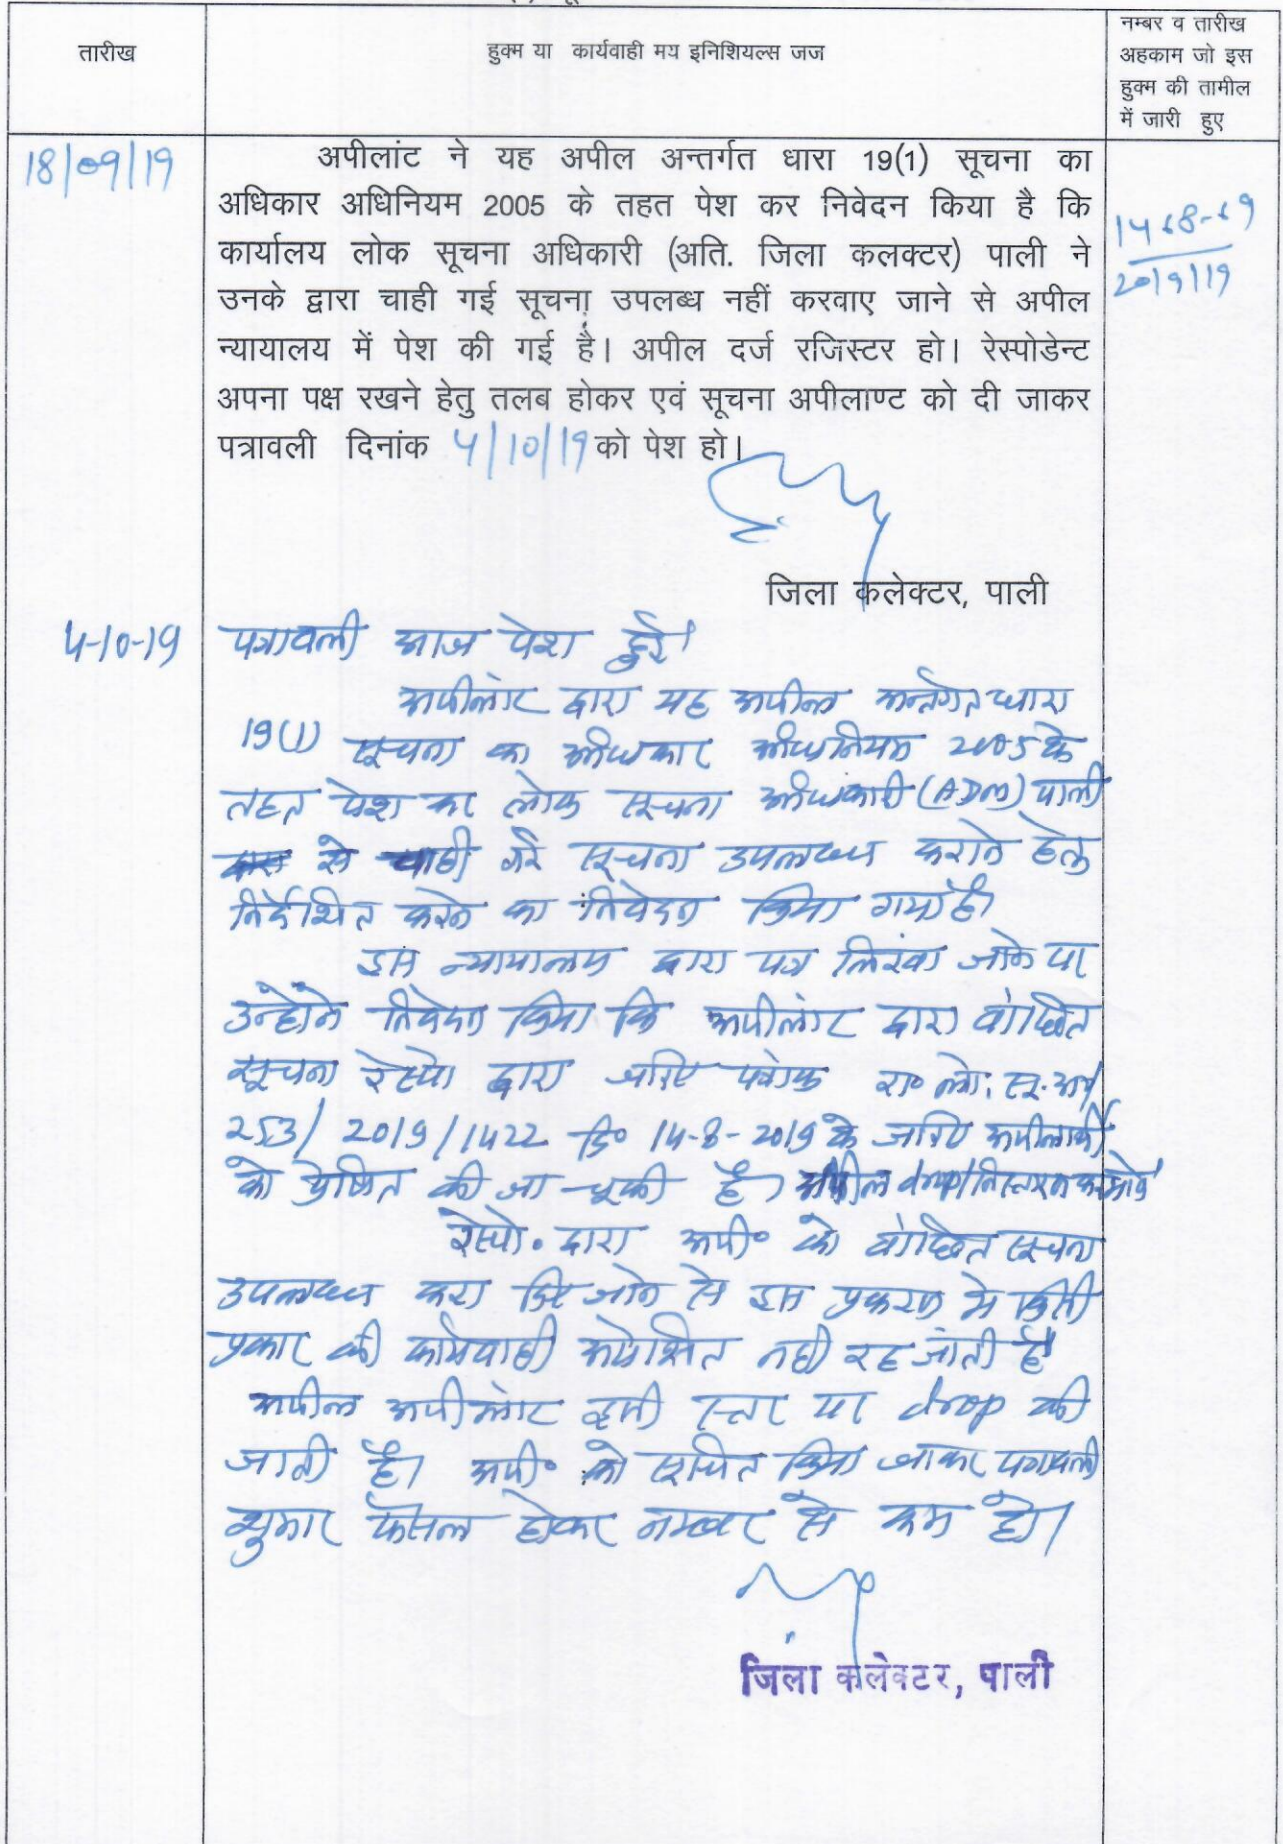 तारीख
हुक्म या कार्यवाही मय इनिशियल्स जज
नम्बर व तारीख
अहकाम जो इस
हुक्म की तामील
में जारी हुए
18/09/19
अपीलांट ने यह अपील अन्तर्गत धारा 19(1) सूचना का
अधिकार अधिनियम 2005 के तहत पेश कर निवेदन किया है कि
कार्यालय लोक सूचना अधिकारी (अति. जिला कलक्टर) पाली ने
उनके द्वारा चाही गई सूचना उपलब्ध नहीं करवाए जाने से अपील
न्यायालय में पेश की गई है। अपील दर्ज रजिस्टर हो। रेस्पोडेन्ट
अपना पक्ष रखने हेतु तलब होकर एवं सूचना अपीलाण्ट को दी जाकर
पत्रावली दिनांक 4/10/19 को पेश हो।
1468-69
20/9/19
जिला कलेक्टर, पाली
4-10-19
पत्रावली आज पेश हुई।
अपीलांट द्वारा यह अपील अन्तर्गत धारा
19(1) सूचना का अधिकार अधिनियम 2005 के
तहत पेश कर लोक सूचना अधिकारी (ADM) पाली
से चाही गई सूचना उपलब्ध कराने हेतु
निर्देशित करने का निवेदन किया गया है।
इस न्यायालय द्वारा पत्र लिखा जाने पर
उन्होंने निवेदन किया कि अपीलांट द्वारा वांछित
सूचना रेस्पो द्वारा जरिए पत्रांक रा० लो. सू. अ
253/2019/1422 दि० 14-8-2019 के जरिए अपीलार्थी
को प्रेषित की जा चूकी है। अपील drop/निस्तारण
रेस्पो० द्वारा अपी० को वांछित सूचना
उपलब्ध करा दिए जाने से इस प्रकरण मे किसी
प्रकार की कार्यवाही अपेक्षित नही रह जाती है
अपील अपीलांट इसी स्तर पर drop की
जाती है। अपी० को सूचित किया जाकर पत्रावली
शुमार फैसल होकर नम्बर से कम हो।
जिला कलेक्टर, पाली